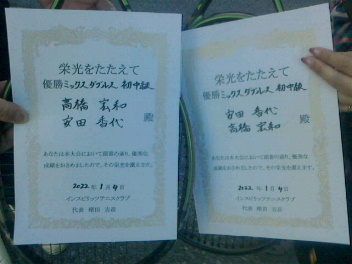 栄光をたたえて
優勝ミックスダブルス 初中級
高橋 宏和
安田 香代
殿
あなたは本大会において頭書の通り、優秀な
成績をおさめましたので、その栄光を讃えます。
2022年1月4日
インスピリッツテニスクラブ
代表
栄光をたたえて
優勝ミックスダブルス 初中級
安田 香代
高橋 宏和
殿
あなたは本大会において頭書の通り、優秀な
成績をおさめましたので、その栄光を讃えます。
2022年1月4日
インスピリッツテニスクラブ
代表